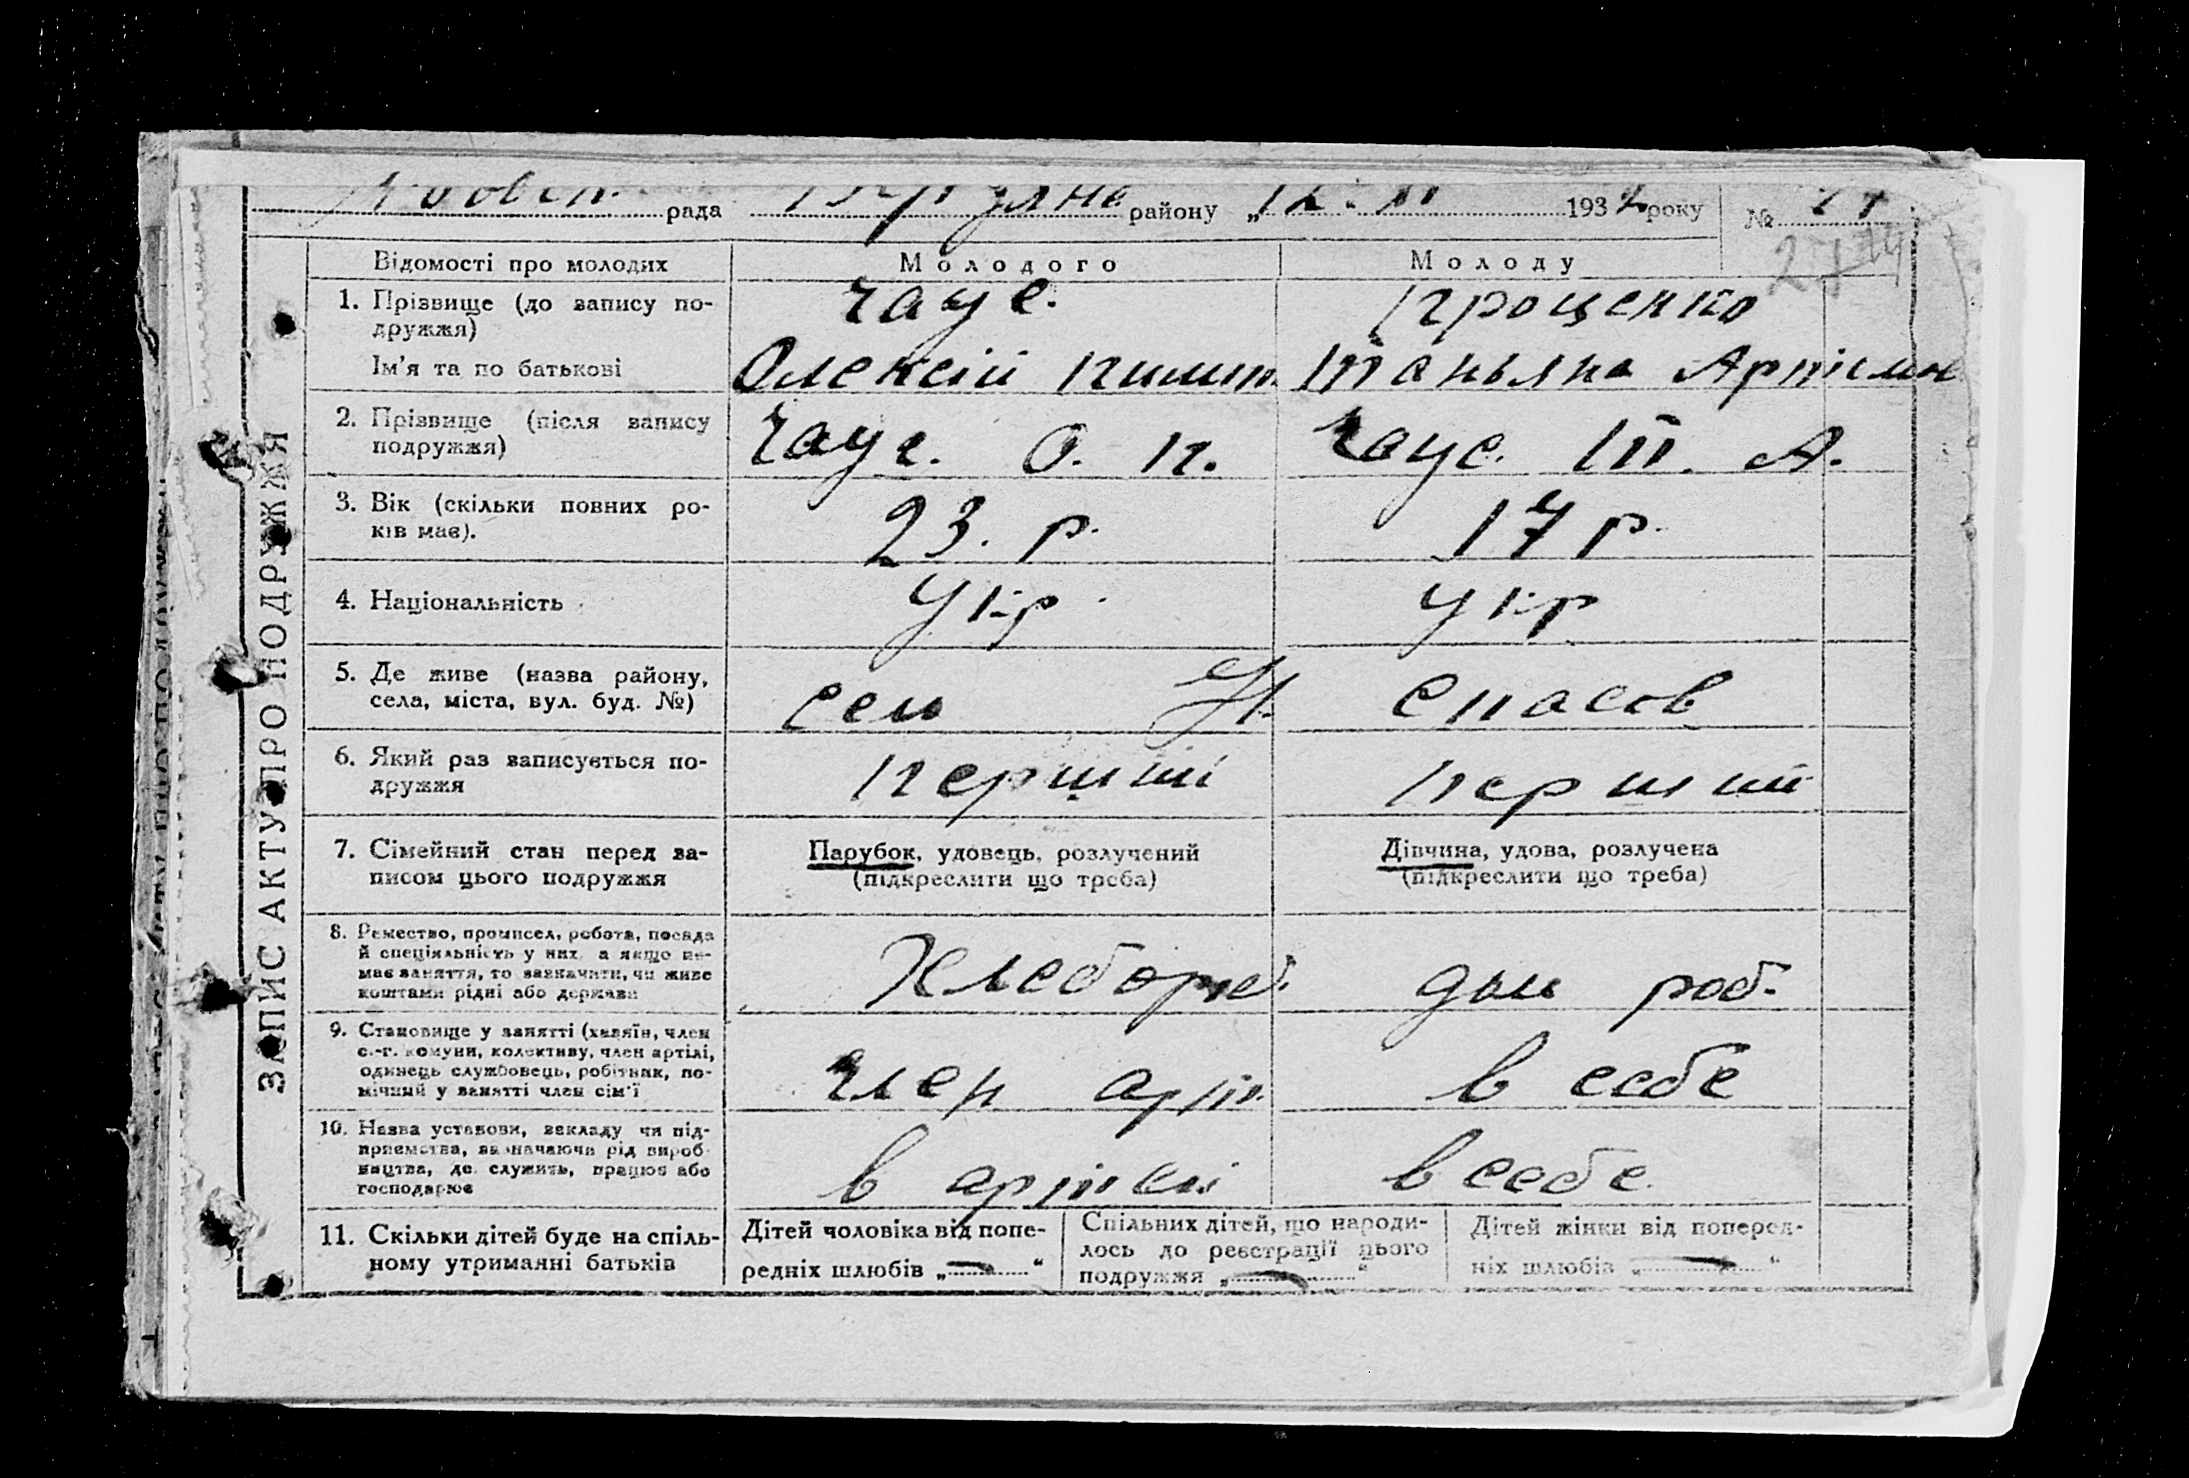 рада району 193 2 року №
ЗАПИС АКТУ ПРО ПОДРУЖЖЯ
Відомості про молодих Молодого Молоду
1. Прізвище (до запису по- Чаус. Проценко
дружжя)
Ім'я та по батькові Олексій Пилип. Таньяна Артісмн
2. Прізвище (після запису Чаус. О. П. Чаус. Т. А.
подружжя)
3. Вік (скільки повних ро- 23. р. 17 р.
ків має).
4. Національність Укр. Укр
5. Де живе (назва району, Спасов
села, міста, вул. буд. №)
6. Який раз записується по- перший перший
дружжя
7. Сімейний стан перед за- Парубок, удовець, розлучений Дівчина, удова, розлучена
писом цього подружжя (підкреслити що треба) (підкреслити що треба)
8. Ремество, промисел, робота, посада
й спеціяльність у них, а якщо не- Хлебороб. дом роб.
має заняття, то зазначити, чи живе
коштами рідні або держави
9. Становище у занятті (хазяїн, член
с.-г. комуни, колективу, член артілі, член арт. в себе
одинець службовець, робітник, по-
мічний у занятті член сім'ї
10. Назва установи, закладу чи під-
приємства, зазначаючи рід вироб- в артілі в себе.
ництва, де служить, працює або
господарює
11. Скільки дітей буде на спіль- Дітей чоловіка від попе- Спільних дітей, що народи- Дітей жінки від поперед-
ному утриманні батьків редніх шлюбів „—“ лось до реєстрації цього ніх шлюбів „—“
подружжя „—“